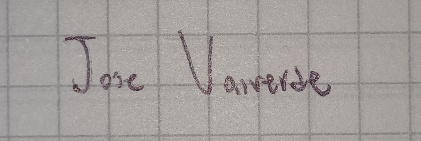 Jose Valverde